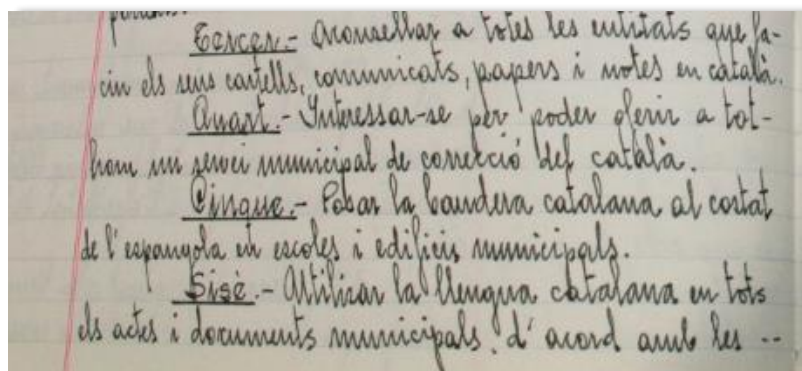 Tercer.- Aconsellar a totes les entitats que fa-
cin els seus cartells, comunicats, papers i notes en català.
Quart.- Interessar-se per poder oferir a tot-
hom un servei municipal de correcció del català.
Cinque.- Posar la bandera catalana al costat
de l'espanyola en escoles i edificis municipals.
Sisè.- Utilizar la llengua catalana en tots
els actes i documents municipals. d'acord amb les --